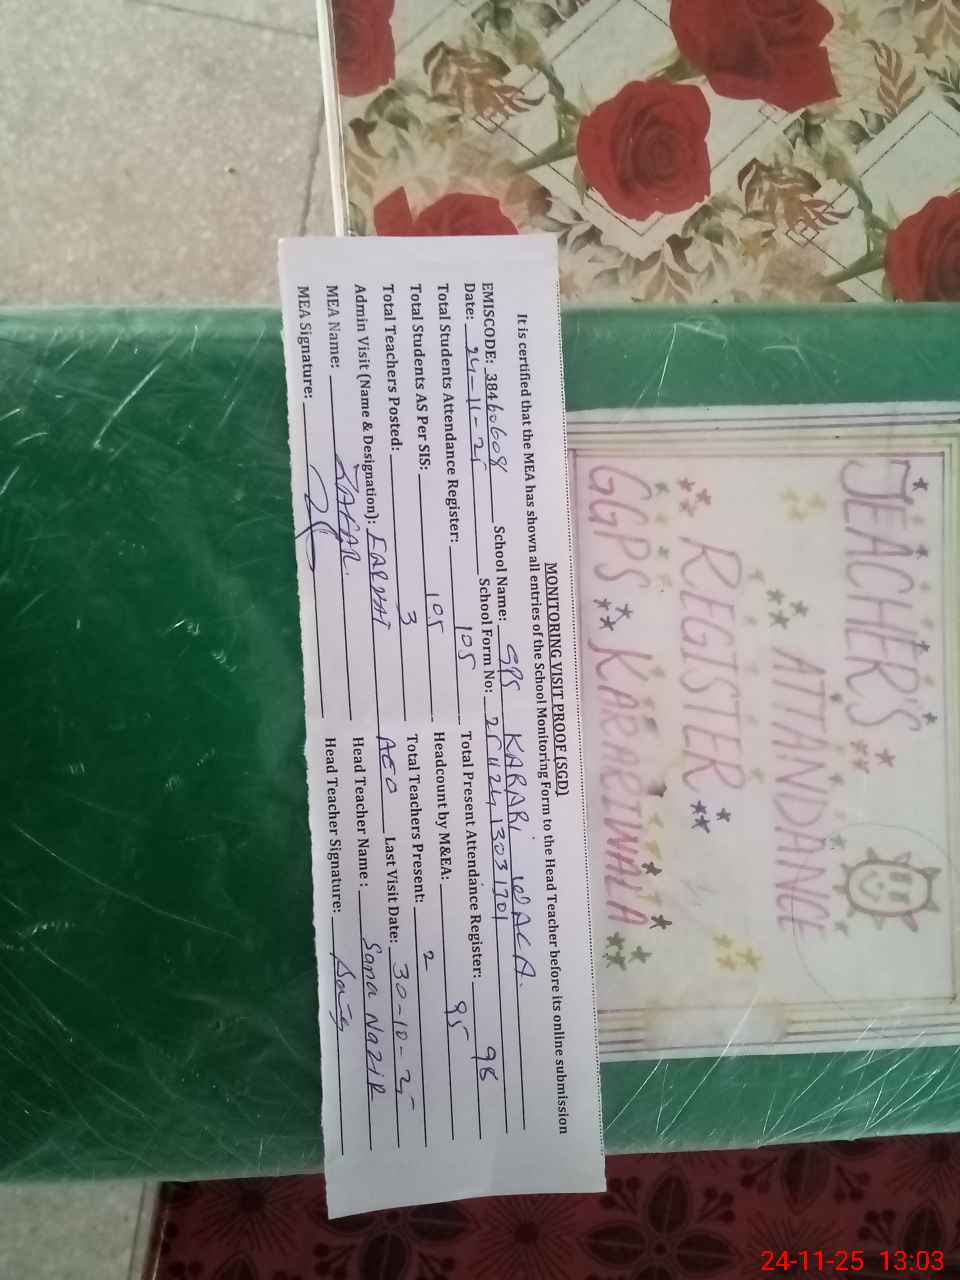 MONITORING VISIT PROOF (SGD)
It is certified that the MEA has shown all entries of the School Monitoring Form to the Head Teacher before its online submission
EMISCODE: 38460608 School Name: GPS KARARI WALA.
Date: 24-11-25 School Form No: 25112413031701
Total Students Attendance Register: 105 Total Present Attendance Register: 98
Total Students AS Per SIS: 105 Headcount by M&EA: 95
Total Teachers Posted: 3 Total Teachers Present: 2
Admin Visit (Name & Designation): AEO Last Visit Date: 30-10-25
MEA Name: ZAFAR. Head Teacher Name : Sana Nazir
MEA Signature: Head Teacher Signature:
TEACHER'S
ATTANDANCE
REGISTER
GGPS KARARIWALA
24-11-25 13:03